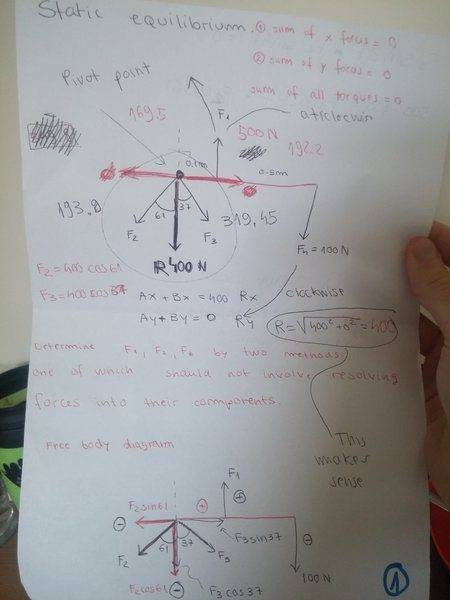 Static equilibrium.
① sum of x forces = 0
② sum of y forces = 0
sum of all torques = 0
Pivot point
F1
aticlockwise
169.5
500N
192.2
0.1m
0.5m
193.8
61
37
319,45
F2
F3
R 400 N
F4 = 100N
F2 = 400 cos61
F3 = 400 cos 37
Ax + Bx = 400 Rx
Ay + By = 0 Ry
clockwise
R = √400² + 0² = 400
Determine F1, F2, F3 by two methods
one of which should not involve resolving
forces into their components.
This
makes
sense
Free body diagram
F1
F2sin61
F3sin37
61
37
F2
F3
F2cos61
F3cos37
100N
1